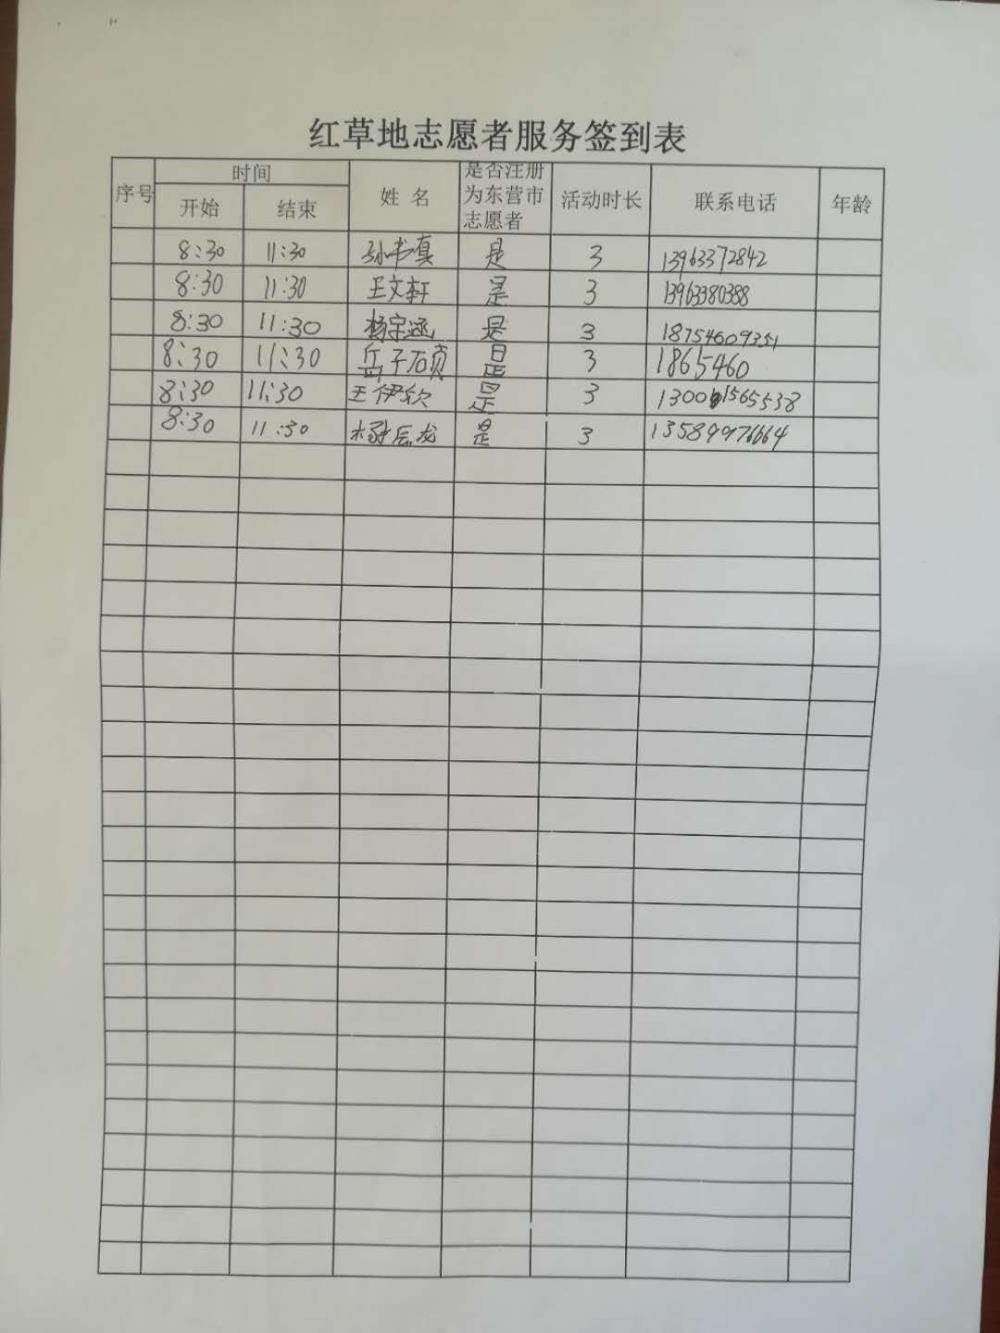 红草地志愿者服务签到表
序号 时间 姓 名 是否注册为东营市志愿者 活动时长 联系电话 年龄
开始 结束
8:30 11:30 孙书真 是 3 13963372842
8:30 11:30 王文轩 是 3 13963380388
8:30 11:30 杨宗涵 是 3 18754609351
8:30 11:30 岳子 是 3 1865460
8:30 11:30 王伊钦 是 3
8:30 11:30 杨辰龙 是 3 13589976664